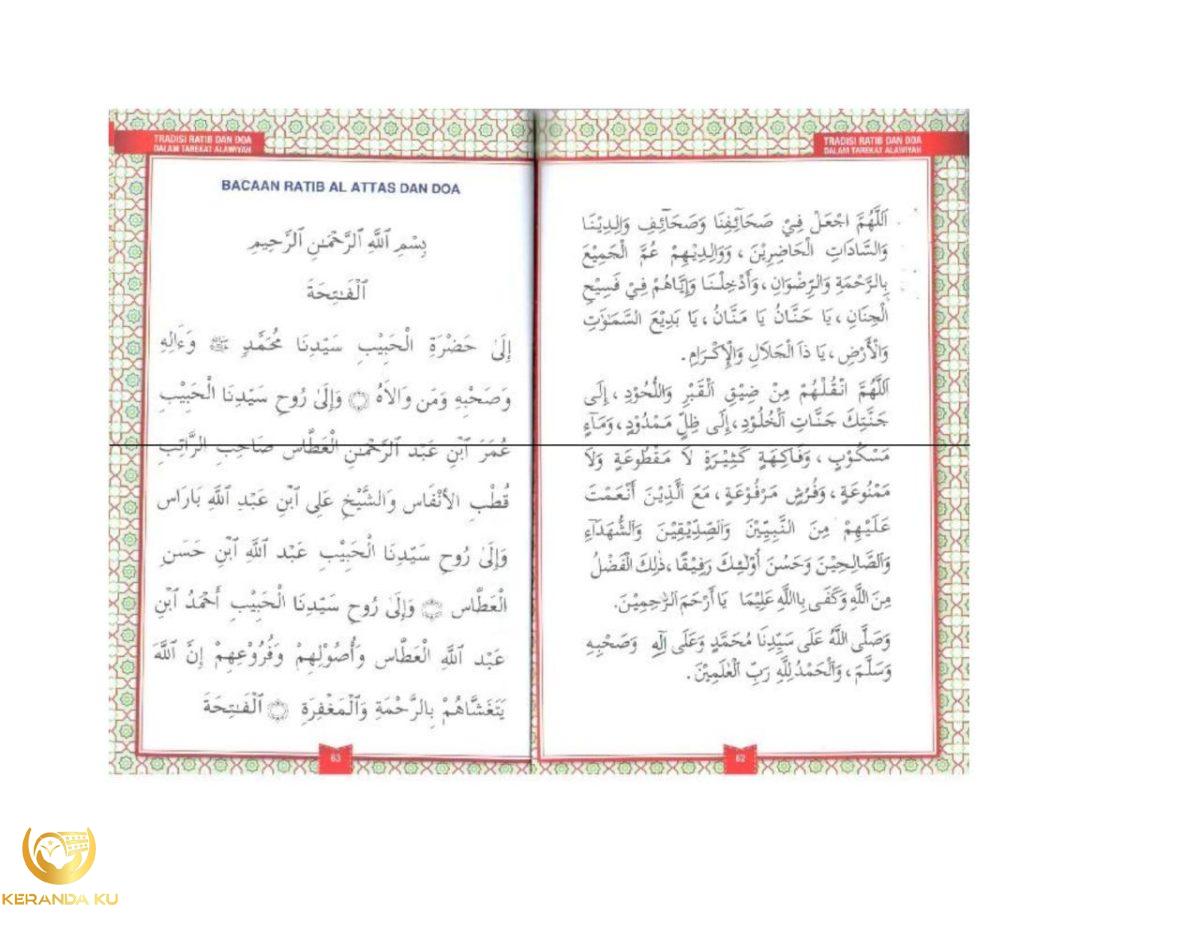 TRADISI RATIB DAN DOA
DALAM TAREKAT ALAWIYAH
اَللَّهُمَّ اجْعَلْ فِيْ صَحَآئِفِنَا وَصَحَآئِفِ وَالِدِيْنَا
وَالسَّادَاتِ الْحَاضِرِيْنَ ، وَوَالِدِيْهِمْ عُمَّ الْجَمِيْعَ
بِالرَّحْمَةِ وَالرِّضْوَانِ ، وَأَدْخِلْنَا وَإِيَّاهُمْ فِيْ فَسِيْحِ
الْجِنَانِ ، يَا حَنَّانُ يَا مَنَّانُ ، يَا بَدِيْعَ السَّمٰوٰتِ
وَالْأَرْضِ ، يَا ذَا الْجَلَالِ وَالْإِكْرَامِ .
اَللَّهُمَّ انْقُلْهُمْ مِنْ ضِيْقِ الْقَبْرِ وَاللُّحُوْدِ ، إِلَى
جَنَّتِكَ جَنَّاتِ الْخُلُوْدِ ، إِلَى ظِلٍّ مَمْدُوْدٍ ، وَمَآءٍ
مَسْكُوْبٍ ، وَفَاكِهَةٍ كَثِيْرَةٍ لَا مَقْطُوْعَةٍ وَلَا
مَمْنُوعَةٍ ، وَفُرُشٍ مَرْفُوْعَةٍ ، مَعَ الَّذِيْنَ أَنْعَمْتَ
عَلَيْهِمْ مِنَ النَّبِيِّيْنَ وَالصِّدِّيْقِيْنَ وَالشُّهَدَآءِ
وَالصَّالِحِيْنَ وَحَسُنَ أُولٰئِكَ رَفِيْقًا ، ذٰلِكَ الْفَضْلُ
مِنَ اللَّهِ وَكَفَى بِاللَّهِ عَلِيْمًا يَا أَرْحَمَ الرَّاحِمِيْنَ.
وَصَلَّى اللَّهُ عَلَى سَيِّدِنَا مُحَمَّدٍ وَعَلَى آلِهِ وَصَحْبِهِ
وَسَلَّمَ ، وَالْحَمْدُ لِلَّهِ رَبِّ الْعٰلَمِيْنَ.
62
TRADISI RATIB DAN DOA
DALAM TAREKAT ALAWIYAH
BACAAN RATIB AL ATTAS DAN DOA
بِسْمِ ٱللَّهِ ٱلرَّحْمَٰنِ ٱلرَّحِيمِ
ٱلْفَاتِحَةَ
إِلَىٰ حَضْرَةِ الْحَبِيْبِ سَيِّدِنَا مُحَمَّدٍ ﷺ وَءَالِهِ
وَصَحْبِهِ وَمَن وَالَاهُ ۞ وَإِلَىٰ رُوحِ سَيِّدِنَا الْحَبِيْبِ
عُمَرَ ٱبْنِ عَبْدِ ٱلرَّحْمَٰنِ الْعَطَّاسِ صَاحِبِ الرَّاتِبِ
قُطْبِ الأَنْفَاسِ وَالشَّيْخِ عَلِي ٱبْنِ عَبْدِ ٱللَّهِ بَارَاس
وَإِلَىٰ رُوحِ سَيِّدِنَا الْحَبِيْبِ عَبْدِ ٱللَّهِ ٱبْنِ حَسَنِ
الْعَطَّاس ۞ وَإِلَىٰ رُوحِ سَيِّدِنَا الْحَبِيْبِ أَحْمَدُ ٱبْنِ
عَبْدِ ٱللَّهِ الْعَطَّاس وَأُصُوْلِهِمْ وَفُرُوْعِهِمْ إِنَّ ٱللَّهَ
يَتَغَشَّاهُمْ بِالرَّحْمَةِ وَالْمَغْفِرَةِ ۞ ٱلْفَاتِحَةَ
63
KERANDA KU